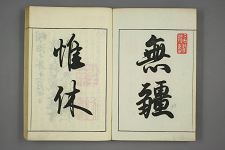 無疆
惟休